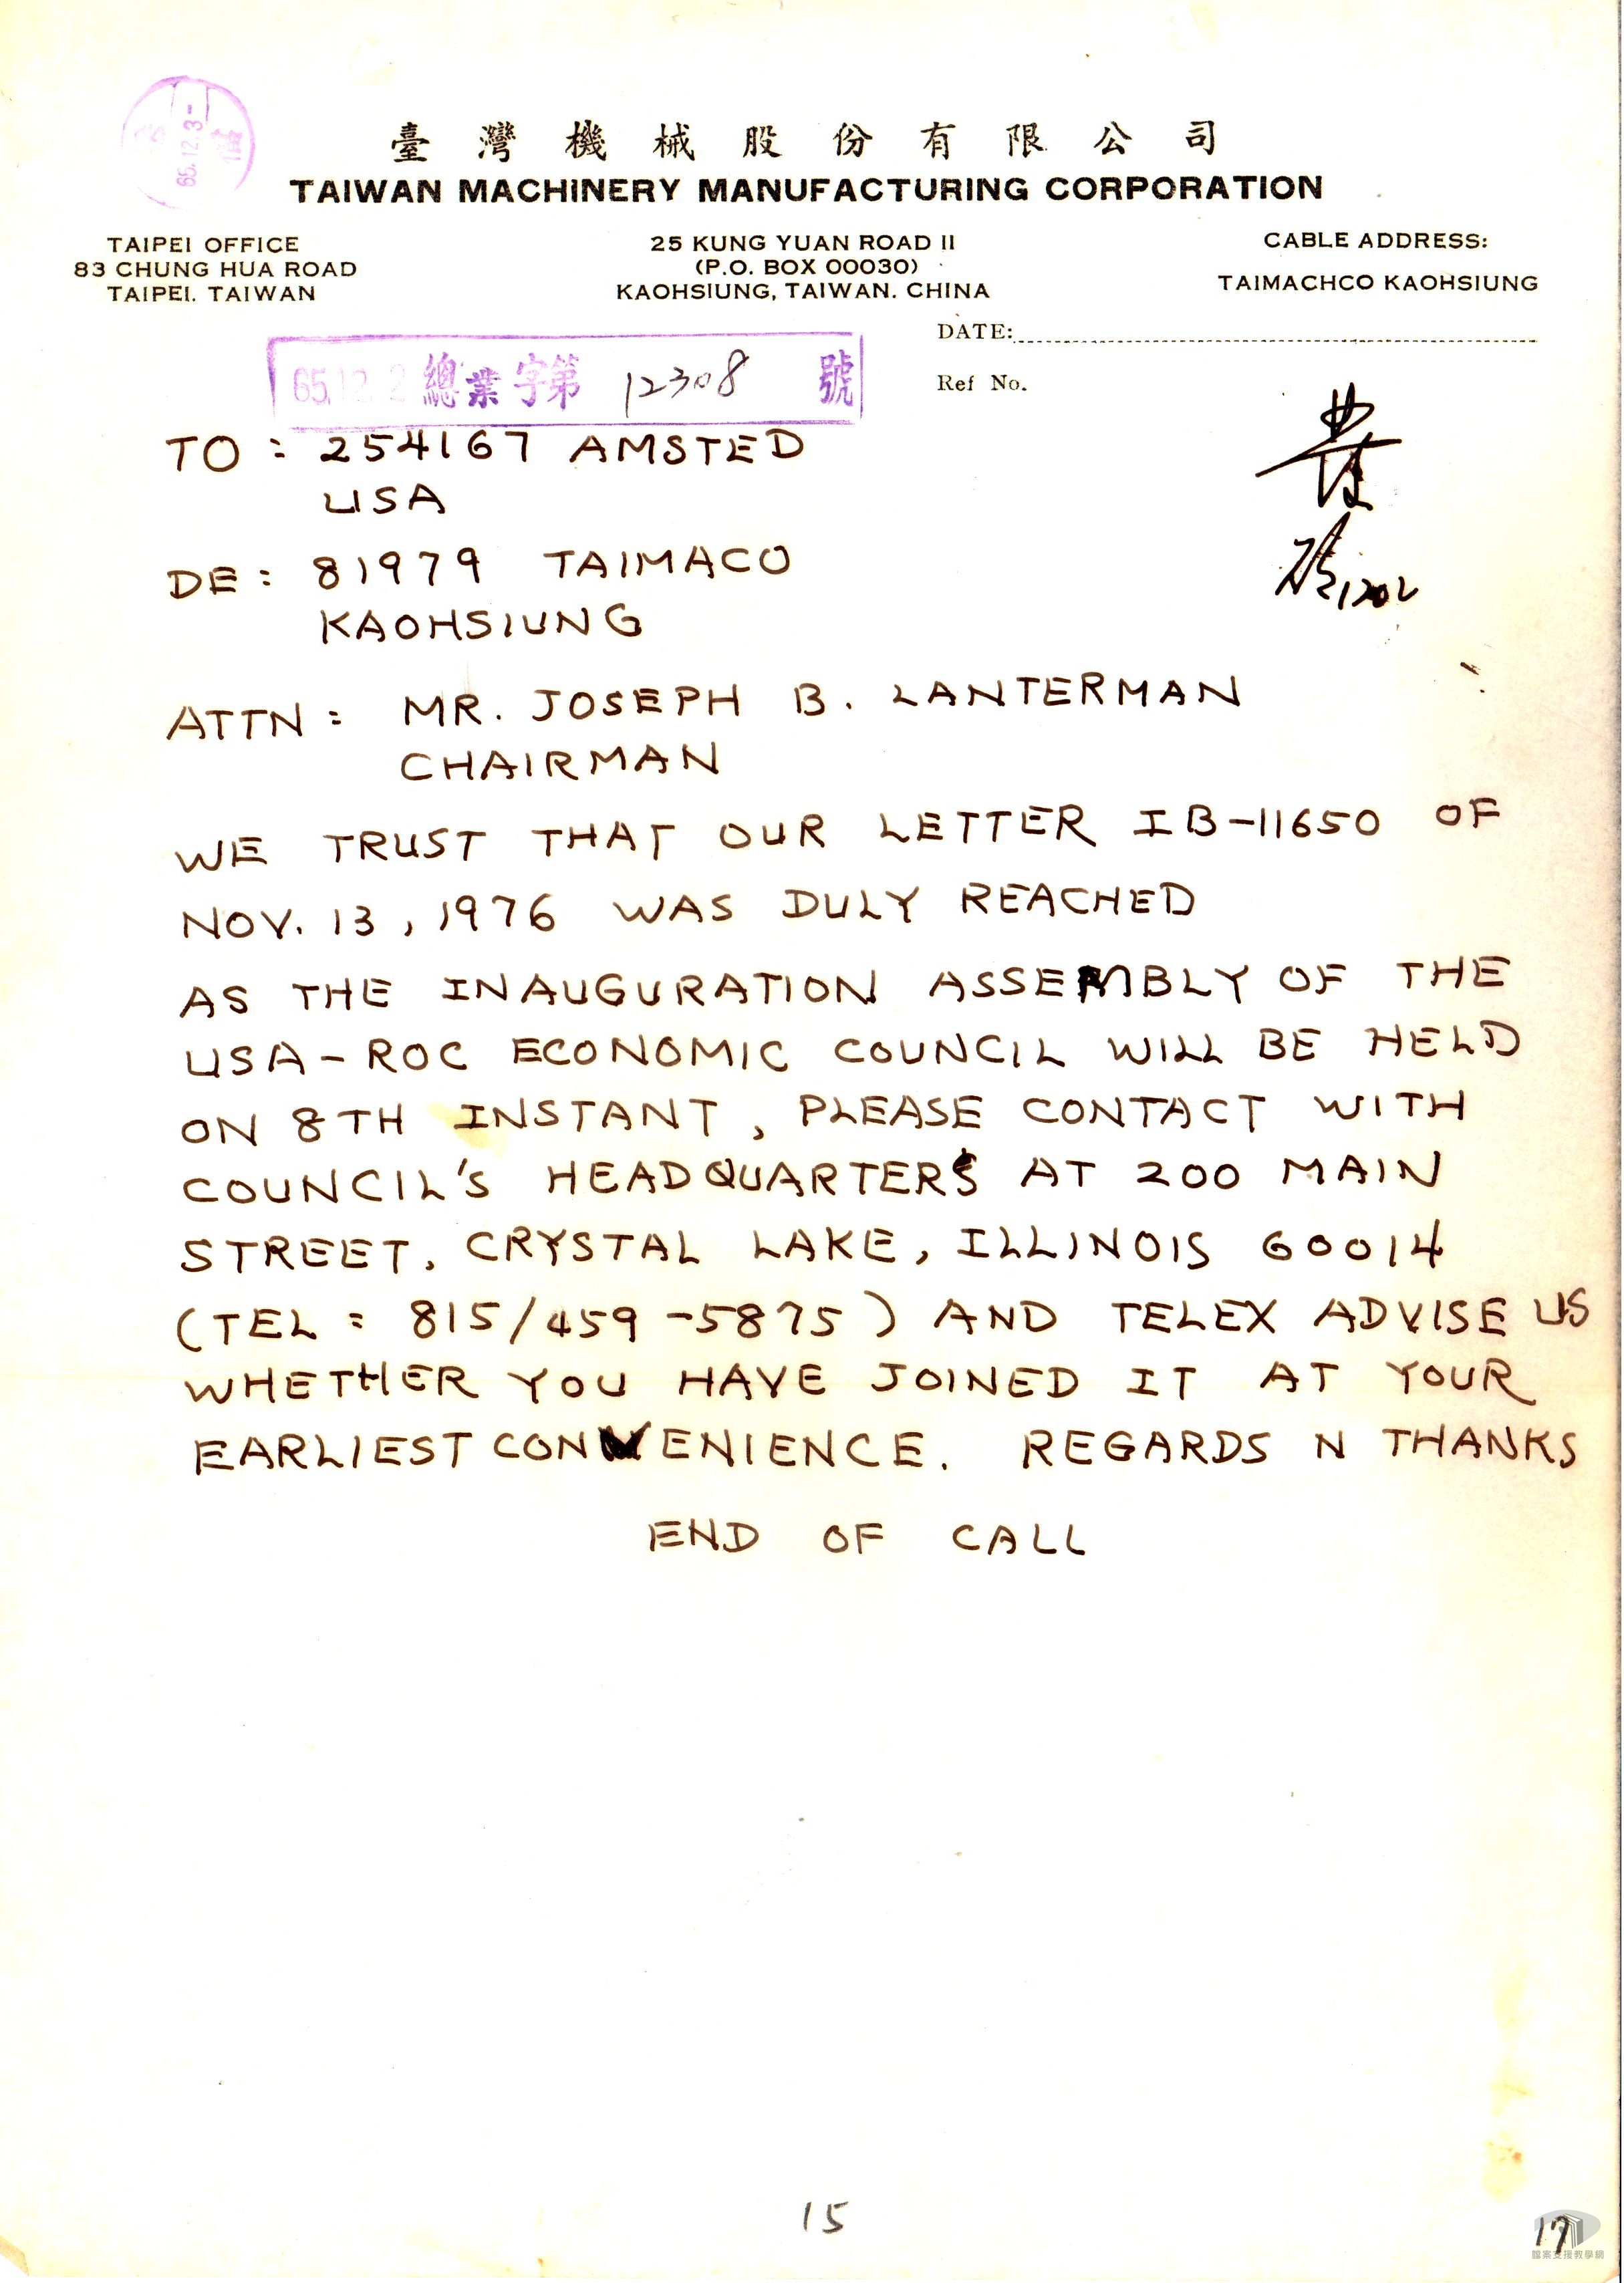 65.12.3-
臺灣機械股份有限公司
TAIWAN MACHINERY MANUFACTURING CORPORATION
TAIPEI OFFICE
83 CHUNG HUA ROAD
TAIPEI. TAIWAN
25 KUNG YUAN ROAD II
(P.O. BOX 00030)
KAOHSIUNG, TAIWAN. CHINA
CABLE ADDRESS:
TAIMACHCO KAOHSIUNG
DATE:
Ref No.
65.12.2 總業字第 12308 號
TO : 254167 AMSTED
USA
DE : 81979 TAIMACO
KAOHSIUNG
ATTN : MR. JOSEPH B. LANTERMAN
CHAIRMAN
WE TRUST THAT OUR LETTER IB-11650 OF
NOV. 13, 1976 WAS DULY REACHED
AS THE INAUGURATION ASSEMBLY OF THE
USA-ROC ECONOMIC COUNCIL WILL BE HELD
ON 8TH INSTANT, PLEASE CONTACT WITH
COUNCIL'S HEADQUARTERS AT 200 MAIN
STREET, CRYSTAL LAKE, ILLINOIS 60014
(TEL : 815/459-5875) AND TELEX ADVISE US
WHETHER YOU HAVE JOINED IT AT YOUR
EARLIEST CONVENIENCE. REGARDS N THANKS
END OF CALL
15
17
檔案支援教學網